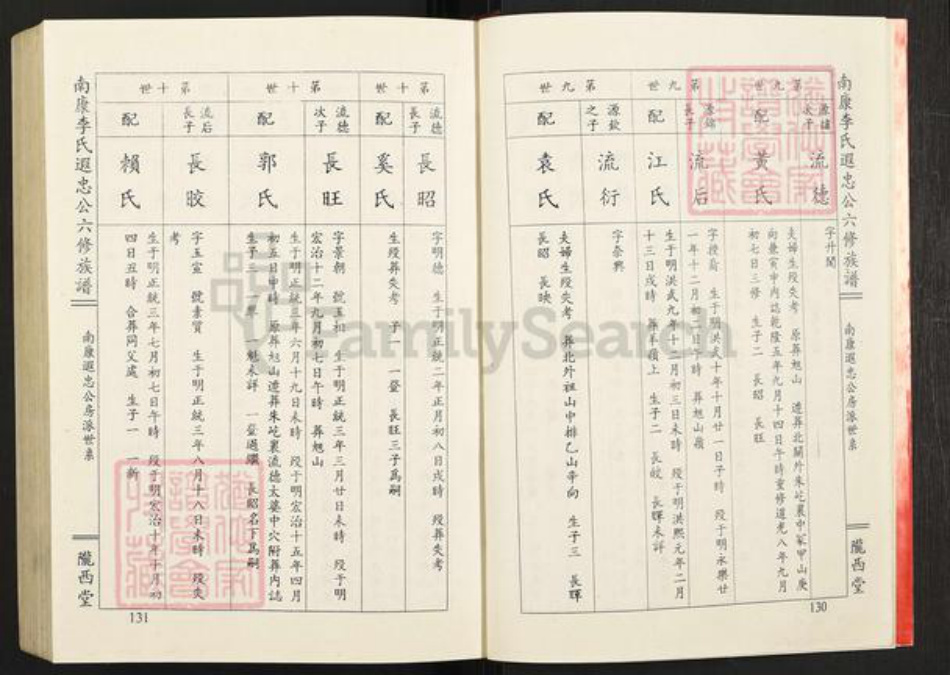 南康李氏遐忠公六修族譜
南康遐忠公房派世系
隴西堂
130
第九世
源鏽次子
流德
字升聞
配
黃氏
夫婦生歿失考 原葬旭山 遷葬北關外朱屹裏中冢甲山庚
向兼寅申內誌乾隆五年九月十四日午時重修道光八年九月
初七日三修 生子二 長昭 長旺
第九世
長子
流后
一年十二月初二日午時 葬旭山嶺
配
江氏
生于明洪武九年十二月初三日未時 歿于明洪熙元年二月
十三日戌時 葬羊嶺上 生子二 長皎 長輝未詳
第九世
源欽之子
流衍
字泰興
配
袁氏
夫婦生歿失考 葬北外祖山中排乙山辛向 生子三 長輝
長昭 長映
第十世
流德長子
長昭
字明德 生于明正統二年正月初八日戌時 歿葬失考
配
奚氏
生歿葬失考 子一 一登 長旺三子爲嗣
第十世
流德次子
長旺
字景朝 號玉和 生于明正統三年三月廿日未時 歿于明
宏治十二年九月初七日午時 葬旭山
配
郭氏
生于明正統三年六月十九日未時 歿于明宏治十五年四月
初五日申時 原葬旭山遷葬朱屹裏流德太婆中穴附葬內誌
生子三 一魁未詳 一登過繼 長昭名下爲嗣
第十世
流后長子
長皎
字玉宣 號素質 生于明正統三年八月十八日未時 歿失
考
配
賴氏
生于明正統三年七月初七日午時 歿于明宏治十年十月初
四日丑時 合葬同父處 生子一 一新
南康李氏遐忠公六修族譜
南康遐忠公房派世系
隴西堂
131
FamilySearch